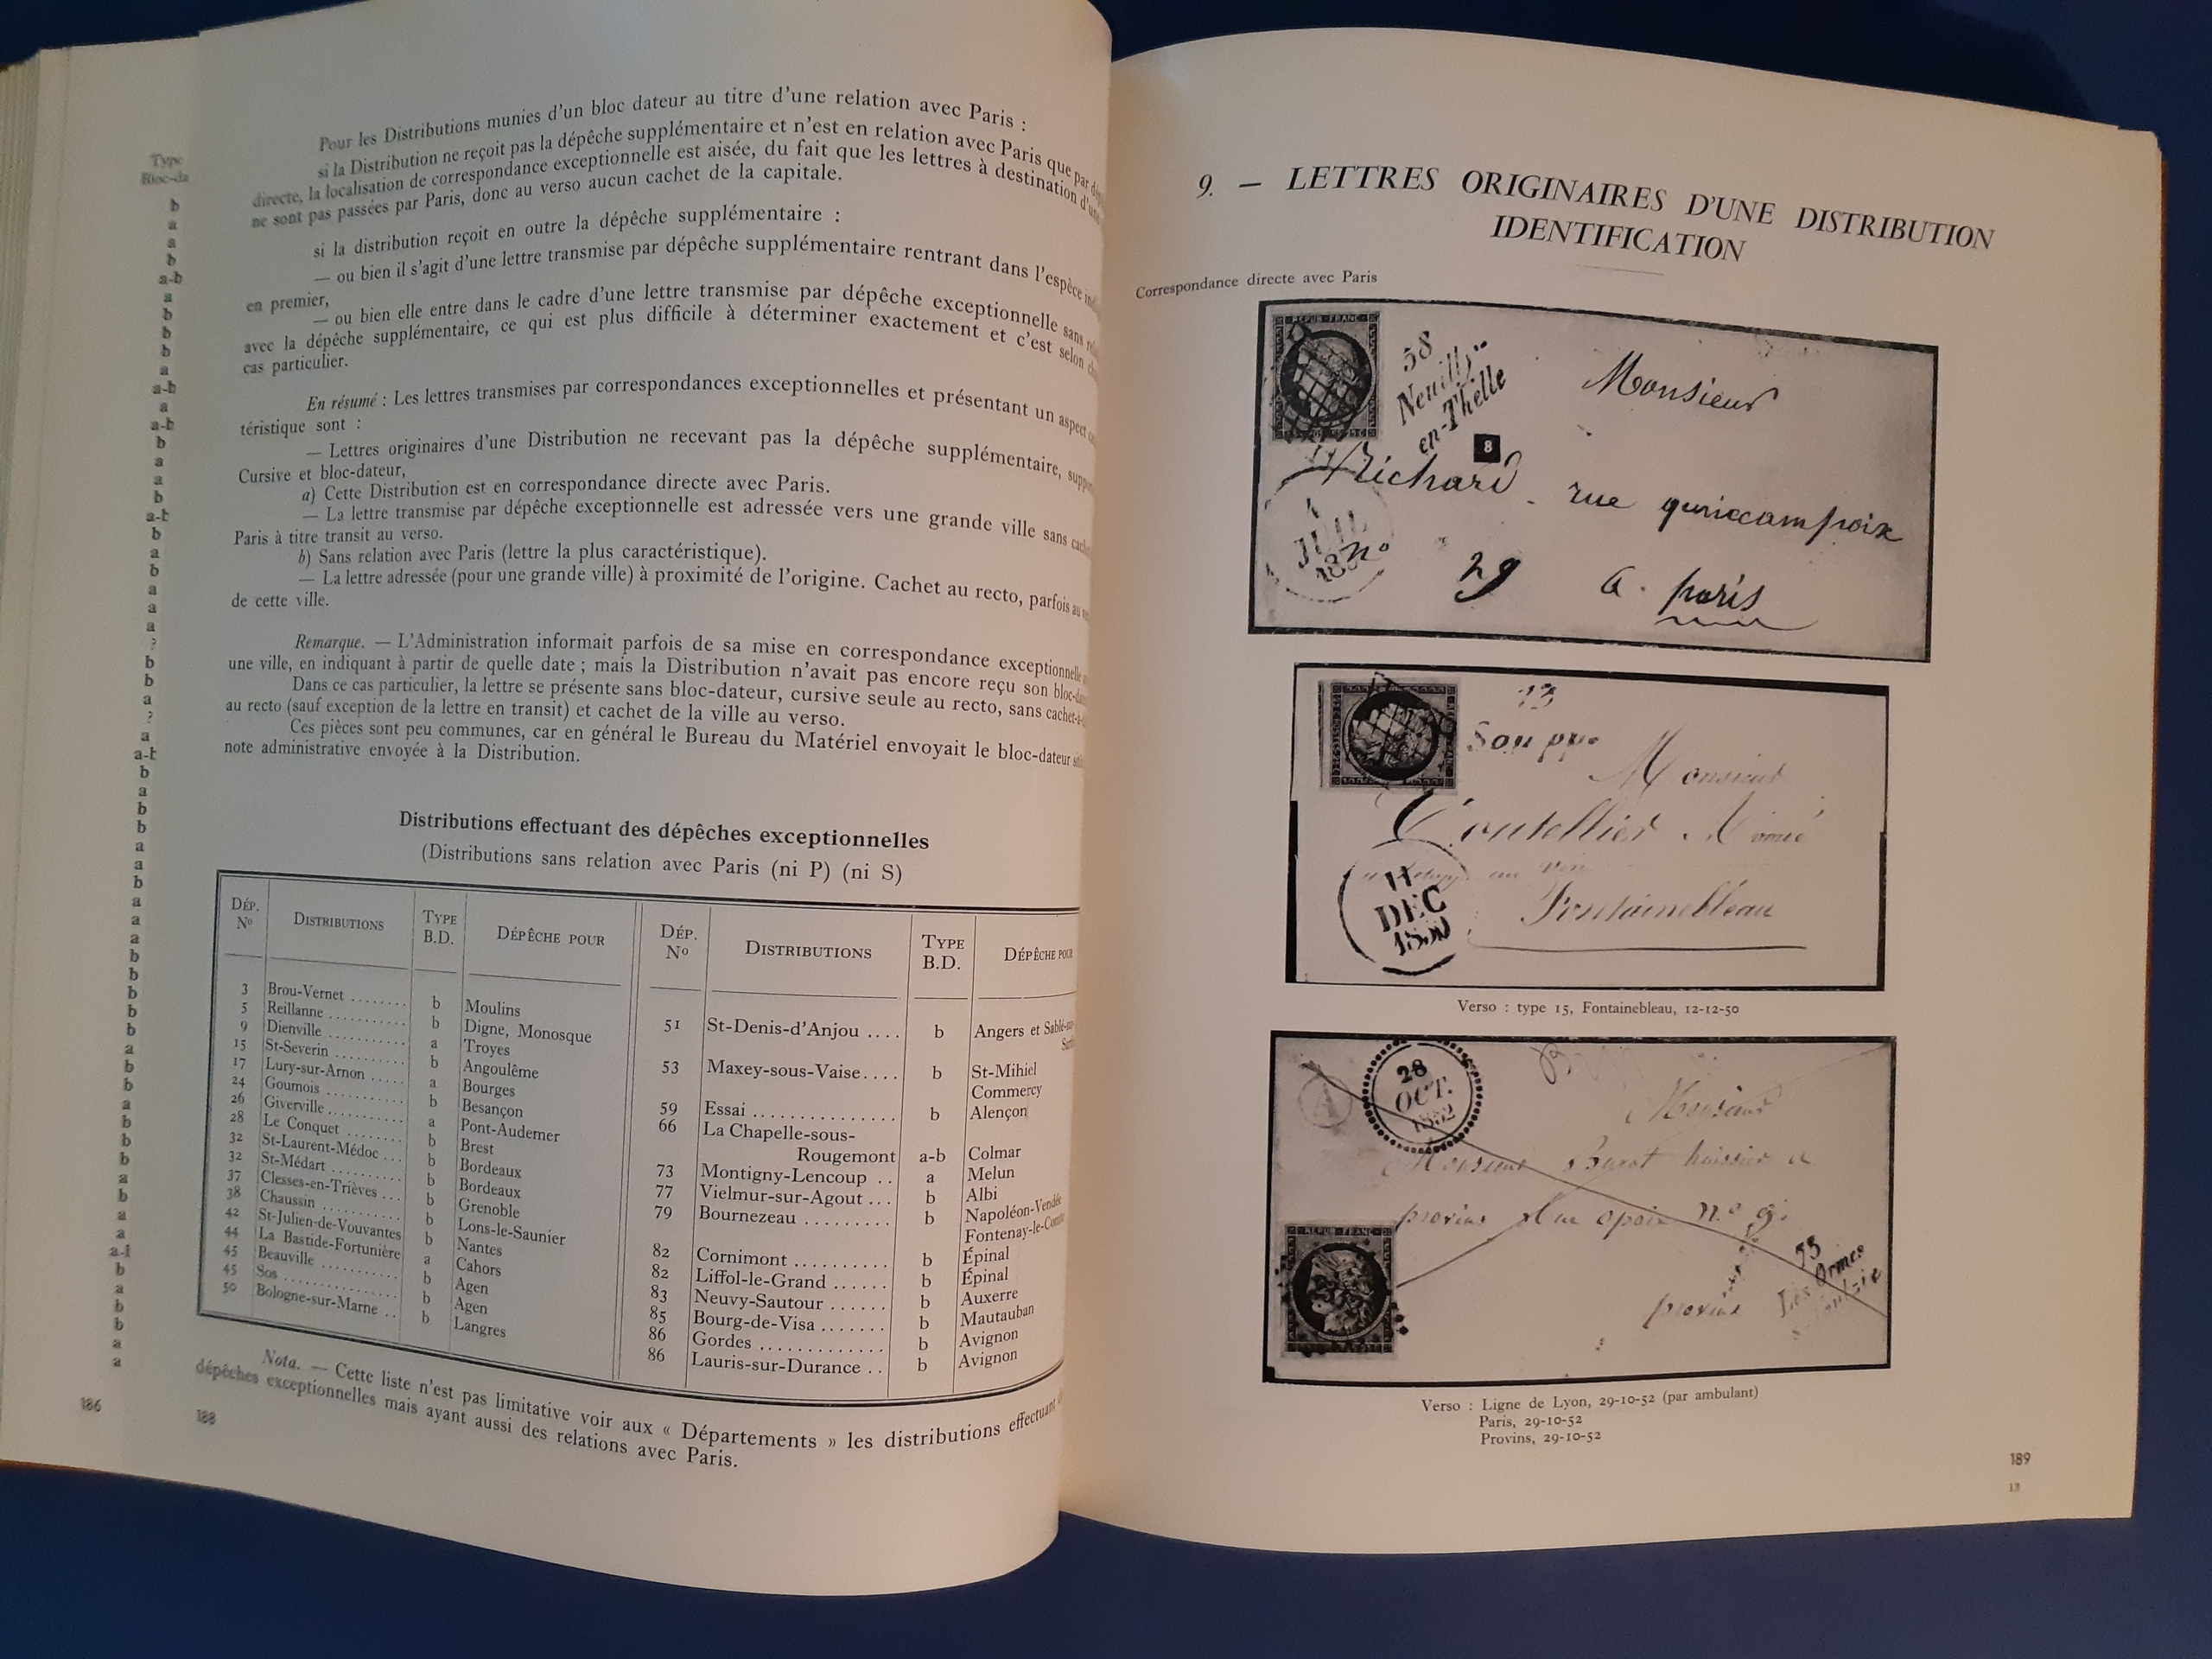 Type
Bloc-da
b
a
a
b
a-b
a
b
b
b
a
a-b
a
a-b
b
a
a
b
a-b
b
a
b
a
a
a
?
b
b
a
?
a
a-b
b
a
b
b
a
a
b
a
a
a
b
b
b
b
b
a
b
b
a
b
b
a
b
a
a
b
a
b
b
a
a
186
Pour les Distributions munies d'un bloc dateur au titre d'une relation avec Paris :
si la Distribution ne reçoit pas la dépêche supplémentaire et n'est en relation avec Paris que par
directe, la localisation de correspondance exceptionnelle est aisée, du fait que les lettres à destination
ne sont pas passées par Paris, donc au verso aucun cachet de la capitale.
si la distribution reçoit en outre la dépêche supplémentaire :
— ou bien il s'agit d'une lettre transmise par dépêche supplémentaire rentrant dans l'espèce
en premier,
— ou bien elle entre dans le cadre d'une lettre transmise par dépêche exceptionnelle sans
avec la dépêche supplémentaire, ce qui est plus difficile à déterminer exactement et c'est selon
cas particulier.
En résumé : Les lettres transmises par correspondances exceptionnelles et présentant un aspect
téristique sont :
— Lettres originaires d'une Distribution ne recevant pas la dépêche supplémentaire,
Cursive et bloc-dateur,
a) Cette Distribution est en correspondance directe avec Paris.
— La lettre transmise par dépêche exceptionnelle est adressée vers une grande ville sans
Paris à titre transit au verso.
b) Sans relation avec Paris (lettre la plus caractéristique).
— La lettre adressée (pour une grande ville) à proximité de l'origine. Cachet au recto, parfois au
de cette ville.
Remarque. — L'Administration informait parfois de sa mise en correspondance exceptionnelle
une ville, en indiquant à partir de quelle date ; mais la Distribution n'avait pas encore reçu son
Dans ce cas particulier, la lettre se présente sans bloc-dateur, cursive seule au recto, sans
au recto (sauf exception de la lettre en transit) et cachet de la ville au verso.
Ces pièces sont peu communes, car en général le Bureau du Matériel envoyait le bloc-dateur
note administrative envoyée à la Distribution.
Distributions effectuant des dépêches exceptionnelles
(Distributions sans relation avec Paris (ni P) (ni S)
Dép. N° Distributions Type B.D. Dépêche pour
3 Brou-Vernet ........ b Moulins
5 Reillanne ........ b Digne, Monosque
9 Dienville ........ a Troyes
15 St-Severin ........ b Angoulême
17 Lury-sur-Arnon ..... a Bourges
24 Goumois ........ b Besançon
26 Giverville ........ a Pont-Audemer
28 Le Conquet ........ b Brest
32 St-Laurent-Médoc ... b Bordeaux
32 St-Médart ........ b Bordeaux
37 Clesses-en-Trièves ... b Grenoble
38 Chaussin ........ b Lons-le-Saunier
42 St-Julien-de-Vouvantes b Nantes
44 La Bastide-Fortunière a Cahors
45 Beauville ........ b Agen
45 Sos ........ b Agen
50 Bologne-sur-Marne .. b Langres
Dép. N° Distributions Type B.D. Dépêche pour
51 St-Denis-d'Anjou .... b Angers et
53 Maxey-sous-Vaise.... b St-Mihiel
Commercy
59 Essai ............... b Alençon
66 La Chapelle-sous-
Rougemont a-b Colmar
73 Montigny-Lencoup .. a Melun
77 Vielmur-sur-Agout ... b Albi
79 Bournezeau ......... b Napoléon-Vendée
Fontenay-le-Comte
82 Cornimont .......... b Épinal
82 Liffol-le-Grand ...... b Épinal
83 Neuvy-Sautour ...... b Auxerre
85 Bourg-de-Visa ....... b Mautauban
86 Gordes ............. b Avignon
86 Lauris-sur-Durance .. b Avignon
Nota. — Cette liste n'est pas limitative voir aux « Départements » les distributions effectuant
dépêches exceptionnelles mais ayant aussi des relations avec Paris.
188
9. — LETTRES ORIGINAIRES D'UNE DISTRIBUTION
IDENTIFICATION
Correspondance directe avec Paris
REPUB FRANC
58
Neuilly-
en-Thelle
8
Monsieur
Richard - rue quincampoix
JUIL
n°
29 a. paris
13
Souppes
Monsieur
Coutellier Avoué
Fontainebleau
11
DEC
1850
Verso : type 15, Fontainebleau, 12-12-50
A
28
OCT.
1852
Monsieur
Monsieur Burot huissier a
provins Rue opoix n° 9.
provins
REPUB FRANC
73
Les Ormes
Verso : Ligne de Lyon, 29-10-52 (par ambulant)
Paris, 29-10-52
Provins, 29-10-52
189
13